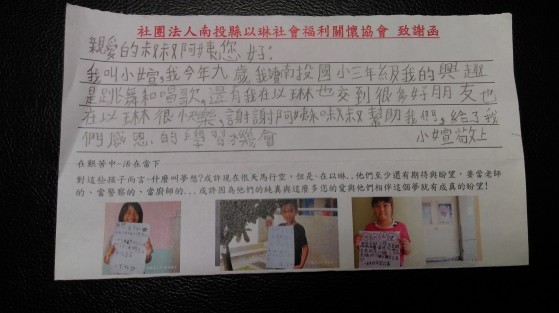 社團法人南投縣以琳社會福利關懷協會 致謝函
親愛的叔叔阿姨您好:
我叫小萱,我今年九歲我讀南投國小三年級我的興趣
是跳舞和唱歌,還有我在以琳也交到很多好朋友也
在以琳很快樂,謝謝阿姨叔叔幫助我們,給了我
們感恩的學習機會 小萱敬上
在艱苦中~活在當下
對這些孩子而言~什麼叫夢想?或許現在很天馬行空,但是~在以琳..他們至少還有期待與盼望,要當老師
的、當警察的,當廚師的...或許因為他們的純真與這麼多您的愛與他們相伴這個夢就有成真的盼望!